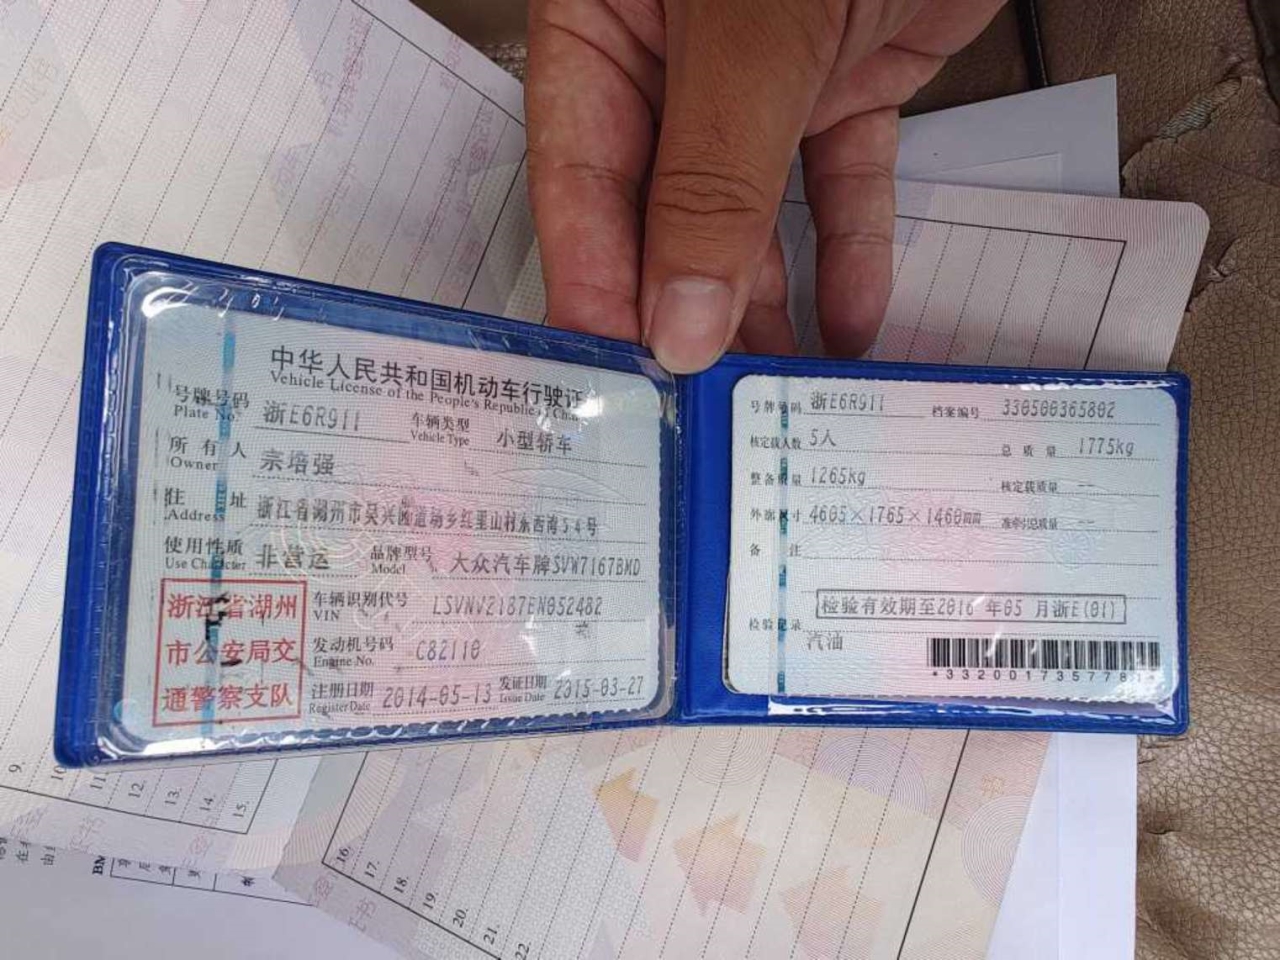 中华人民共和国机动车行驶证
Vehicle License of the People's Republic of China
号牌号码 浙E6R911 车辆类型 小型轿车
Plate No. Vehicle Type
所有人 宗培强
Owner
住址 浙江省湖州市吴兴区道场乡红里山村东西湾54号
Address
使用性质 非营运 品牌型号 大众汽车牌SVW7167BMD
Use Character Model
浙江省湖州
市公安局交
通警察支队
车辆识别代号 LSVNV2187EN052482
VIN
发动机号码 C82110
Engine No.
注册日期 2014-05-13 发证日期 2015-03-27
Register Date Issue Date
号牌号码 浙E6R911 档案编号 330500365802
核定载人数 5人 总质量 1775kg
整备质量 1265kg 核定载质量 --
外廓尺寸 4605×1765×1460mm 准牵引总质量 --
备注
检验有效期至2016年05月浙E(01)
检验记录
汽油
9.
10
11
12.
13.
14.
15.
16.
17.
18.
19.
20.
21
22